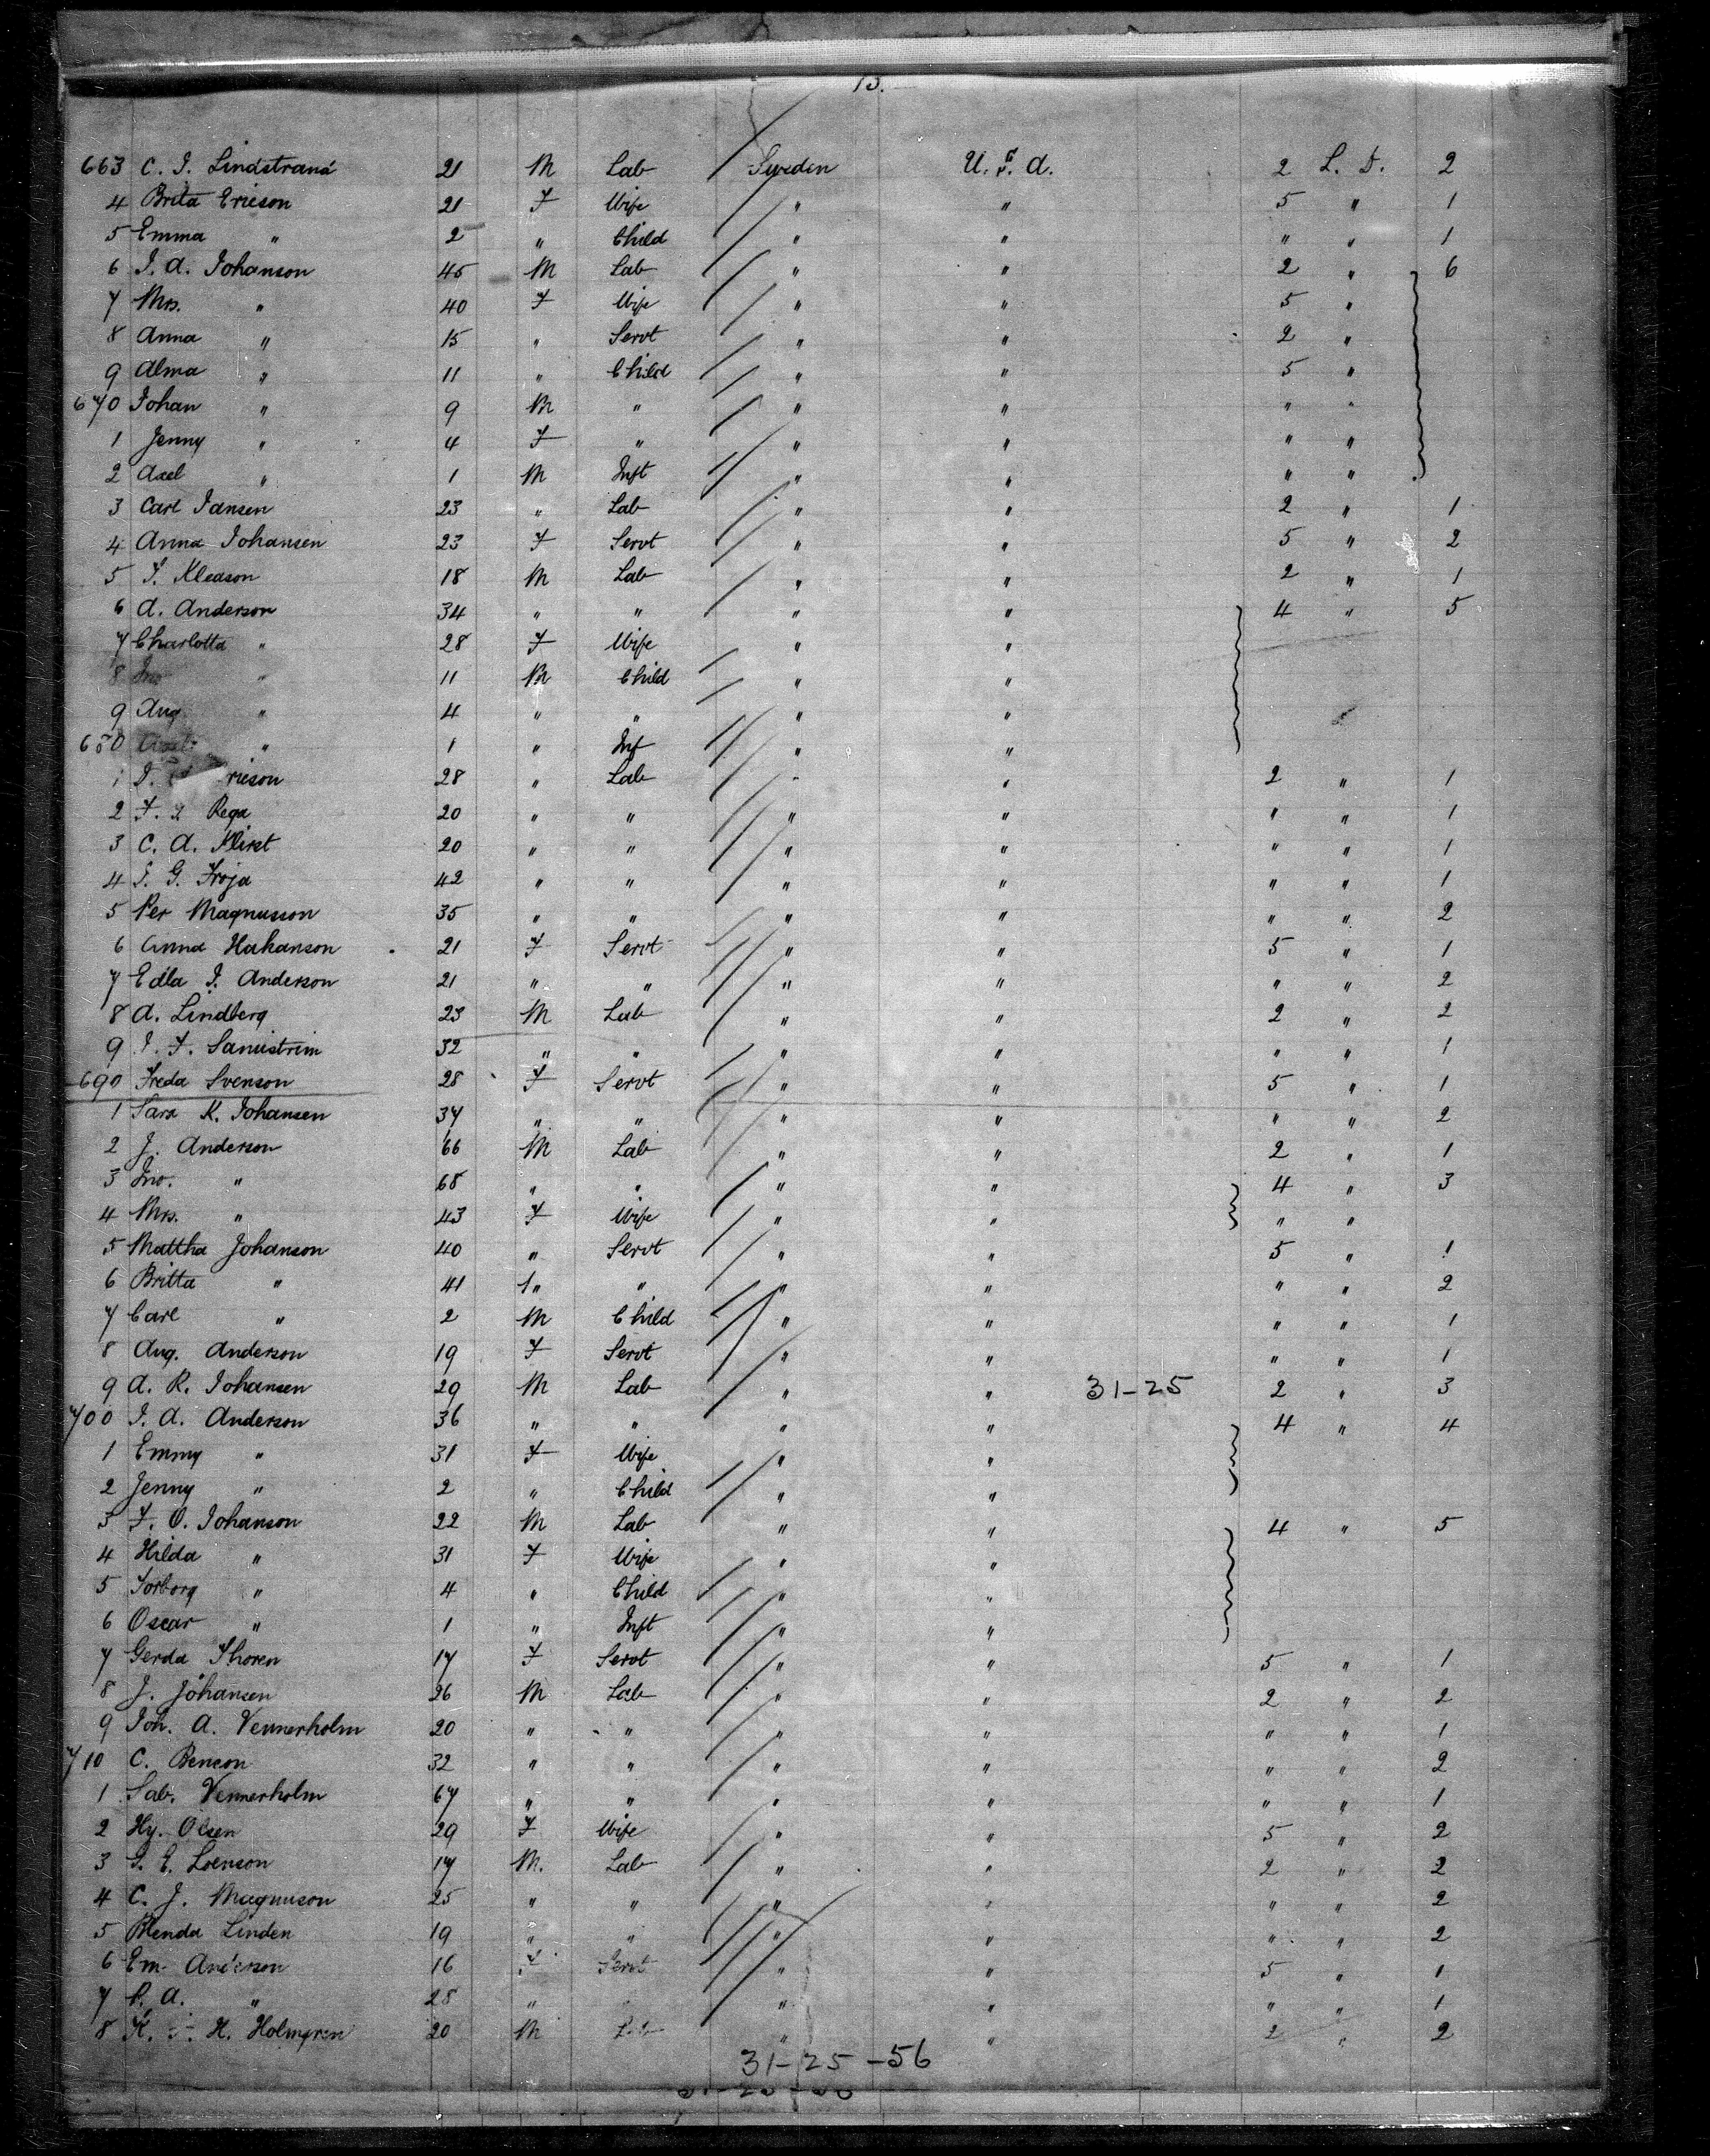 13.
663 C. J. Lindstrand 21 M Lab Sweden U. S. A. 2 L. D. 2
4 Brita Ericson 21 F Wife " " 5 " 1
5 Emma " 2 " Child " " " " 1
6 J. A. Johanson 45 M Lab " " 2 " 6
7 Mrs. " 40 F Wife " " 5 "
8 Anna " 15 " Servt " " 2 "
9 Alma " 11 " Child " " 5 "
670 Johan " 9 M " " " " "
1 Jenny " 4 F " " " " "
2 Axel " 1 M Inft " " " "
3 Carl Jansen 23 " Lab " " 2 " 1
4 Anna Johansen 23 F Servt " " 5 " 2
5 Kleason 18 M Lab " " 2 " 1
6 A. Anderson 34 " " " " 4 " 5
7 Charlotta " 28 F Wife " "
8 Jno " 11 M Child " "
9 Aug " 4 " " " "
680 " 1 " Inf " "
1 28 " Lab " " 2 " 1
2 Rega 20 " " " " " " 1
3 C. A. 20 " " " " " " 1
4 G. Froja 42 " " " " " " 1
5 Per Magnusson 35 " " " " " " 2
6 Anna Hakanson 21 F Servt " " 5 " 1
7 Edla J. Anderson 21 " " " " " " 2
8 A. Lindberg 23 M Lab " " 2 " 2
9 J. F. 32 " " " " " " 1
690 Freda Svenson 28 F Servt " " 5 " 1
1 Sara K. Johansen 37 " " " " " " 2
2 J. Anderson 66 M Lab " " 2 " 1
3 Jno. " 68 " " " " 4 " 3
4 Mrs. " 43 F Wife " " " "
5 Mattha Johanson 40 " Servt " " 5 " 1
6 Britta " 41 " " " " " " 2
7 Carl " 2 M Child " " " " 1
8 Aug. Anderson 19 F Servt " " " " 1
9 A. R. Johansen 29 M Lab " " 31-25 2 " 3
700 J. A. Anderson 36 " " " " 4 " 4
1 Emmy " 31 F Wife " "
2 Jenny " 2 " Child " "
3 F. O. Johanson 22 M Lab " " 4 " 5
4 Hilda " 31 F Wife " "
5 Torborg " 4 " Child " "
6 Oscar " 1 " Inft " "
7 Gerda Thoren 17 F Servt " " 5 " 1
8 J. Johansen 26 M Lab " " 2 " 2
9 Joh. A. Vennerholm 20 " " " " " " 1
710 C. Benson 32 " " " " " " 2
1 Sab. Vennerholm 67 " " " " " " 1
2 Hy. Olsen 29 F Wife " " 5 " 2
3 E. 17 M. Lab " " 2 " 2
4 C. J. Magnuson 25 " " " " " " 2
5 Blenda Linden 19 " " " " " " 2
6 Em. Anderson 16 F Servt " " 5 " 1
7 A. " 28 " " " " " 1
8 K. H. Holmgren 20 M Lab " " 2 " 2
31-25-56